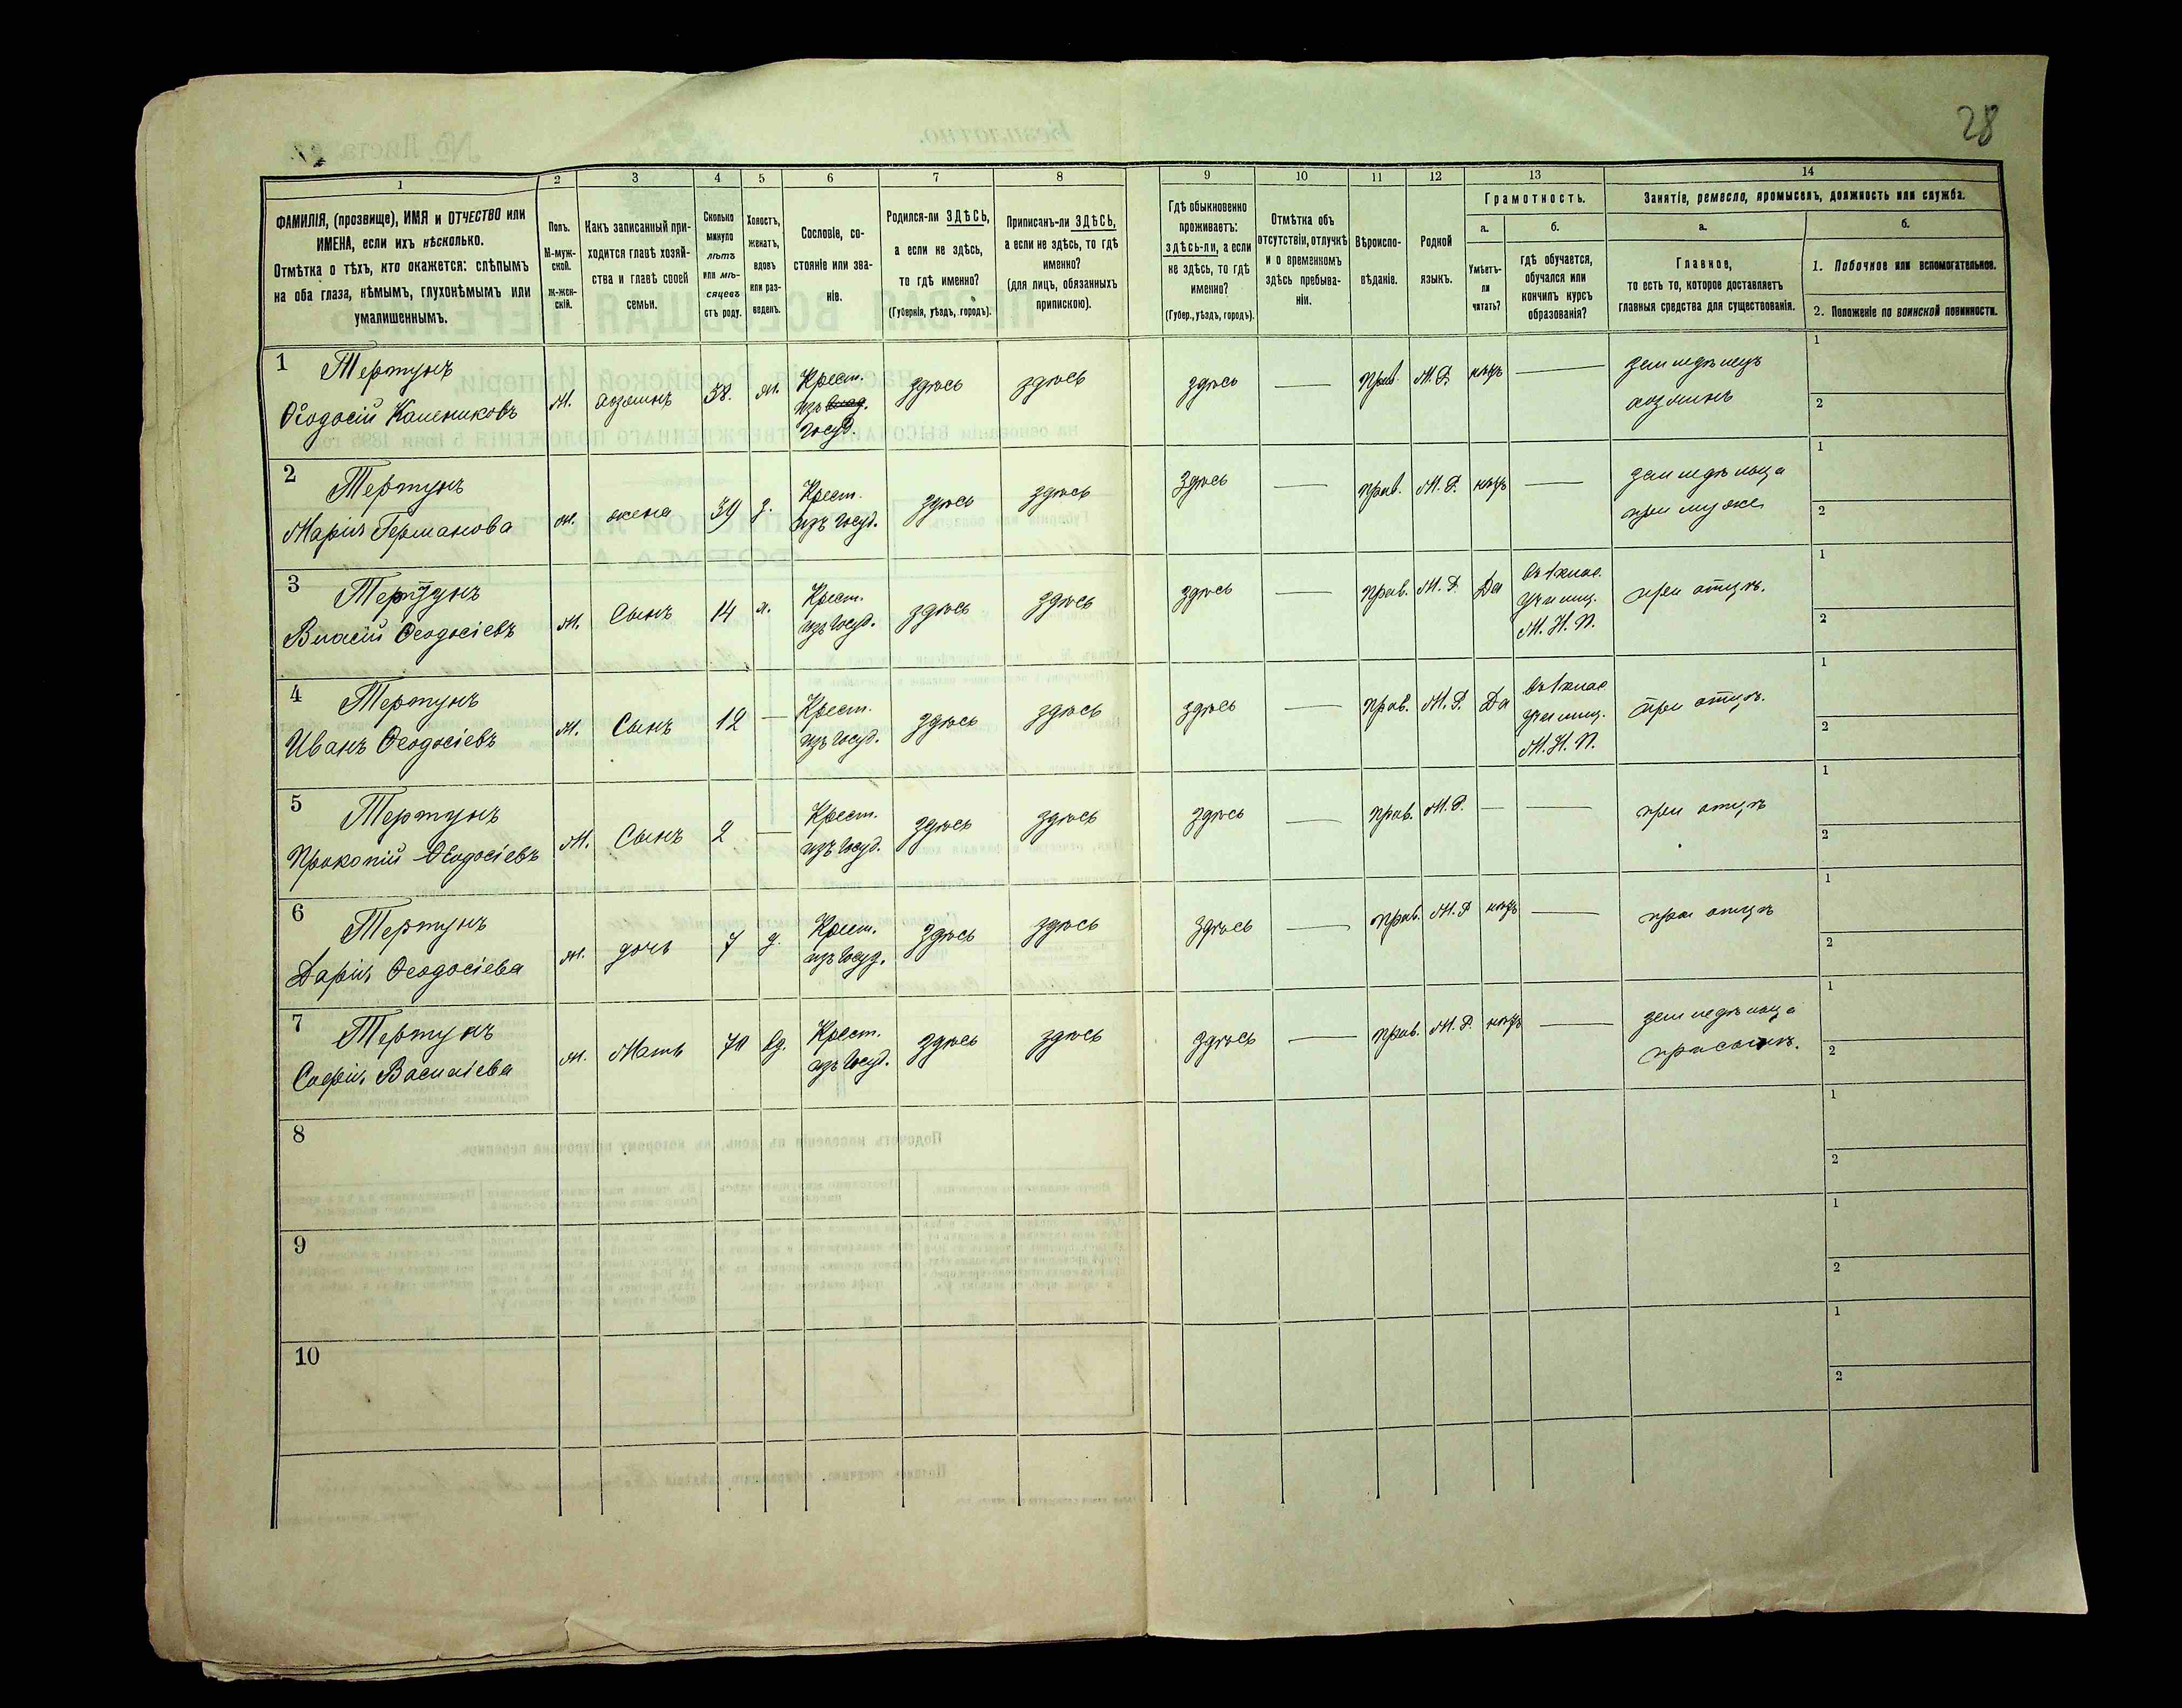 28
1 2 3 4 5 6 7 8 9 10 11 12 13 14
ФАМИЛІЯ, (прозвище), ИМЯ и ОТЧЕСТВО или
ИМЕНА, если ихъ нѣсколько.
Отмѣтка о тѣхъ, кто окажется: слѣпымъ
на оба глаза, нѣмымъ, глухонѣмымъ или
умалишеннымъ.
Полъ.
М-муж-
ской.
Ж-жен-
скій.
Какъ записанный при-
ходится главѣ хозяй-
ства и главѣ своей
семьи.
Сколько
минуло
лѣтъ
или мѣ-
сяцевъ
отъ роду.
Холостъ,
женатъ,
вдовъ
или раз-
веденъ.
Сословіе, со-
стояніе или зва-
ніе.
Родился-ли ЗДѢСЬ,
а если не здѣсь,
то гдѣ именно?
(Губернія, уѣздъ, городъ).
Приписанъ-ли ЗДѢСЬ,
а если не здѣсь, то гдѣ
именно?
(для лицъ, обязанныхъ
припискою).
Гдѣ обыкновенно
проживаетъ:
здѣсь-ли, а если
не здѣсь, то гдѣ
именно?
(Губер., уѣздъ, городъ).
Отмѣтка объ
отсутствіи, отлучкѣ
и о временномъ
здѣсь пребыва-
ніи.
Вѣроиспо-
вѣданіе.
Родной
языкъ.
Грамотность.
а.
Умѣетъ-
ли
читать?
б.
гдѣ обучается,
обучался или
кончилъ курсъ
образованія?
Занятіе, ремесло, промыселъ, должность или служба.
а.
Главное,
то есть то, которое доставляетъ
главныя средства для существованія.
б.
1. Побочное или вспомогательное.
2. Положеніе по воинской повинности.
1 Тертунъ
Ѳеодосій Калениковъ
М. хозяинъ 38. ж. Крест.
изъ влад.
госуд.
здѣсь здѣсь здѣсь — Прав. М. Р. нѣтъ —
земледѣлецъ
хозяинъ
1
2
2 Тертунъ
Марія Германова
ж. жена 39 з. Крест.
изъ госуд.
здѣсь здѣсь здѣсь — Прав. М. Р. нѣтъ —
земледѣлица
при мужѣ
1
2
3 Тертунъ
Власій Ѳеодосіевъ
М. Сынъ 14 х. Крест.
изъ госуд.
здѣсь здѣсь здѣсь — Прав. М. Р. Да
въ 1 клас.
училищ.
М. Н. П.
при отцѣ.
1
2
4 Тертунъ
Иванъ Ѳеодосіевъ
М. Сынъ 12 — Крест.
изъ госуд.
здѣсь здѣсь здѣсь — Прав. М. Р. Да
въ 1 клас
училищ.
М. Н. П.
при отцѣ.
1
2
5 Тертунъ
Прокопій Ѳеодосіевъ
М. Сынъ 2 — Крест.
изъ госуд.
здѣсь здѣсь здѣсь — Прав. М. Р. — —
при отцѣ
1
2
6 Тертунъ
Дарія Ѳеодосіева
ж. дочь 7 д. Крест.
изъ госуд.
здѣсь здѣсь здѣсь — Прав. М. Р нѣтъ —
при отцѣ
1
2
7 Тертунъ
Софія Василіева
ж. Мать 70 вд. Крест.
изъ госуд.
здѣсь здѣсь здѣсь — Прав. М. Р. нѣтъ —
земледѣлица
при сынѣ.
1
2
8
1
2
9
1
2
10
1
2